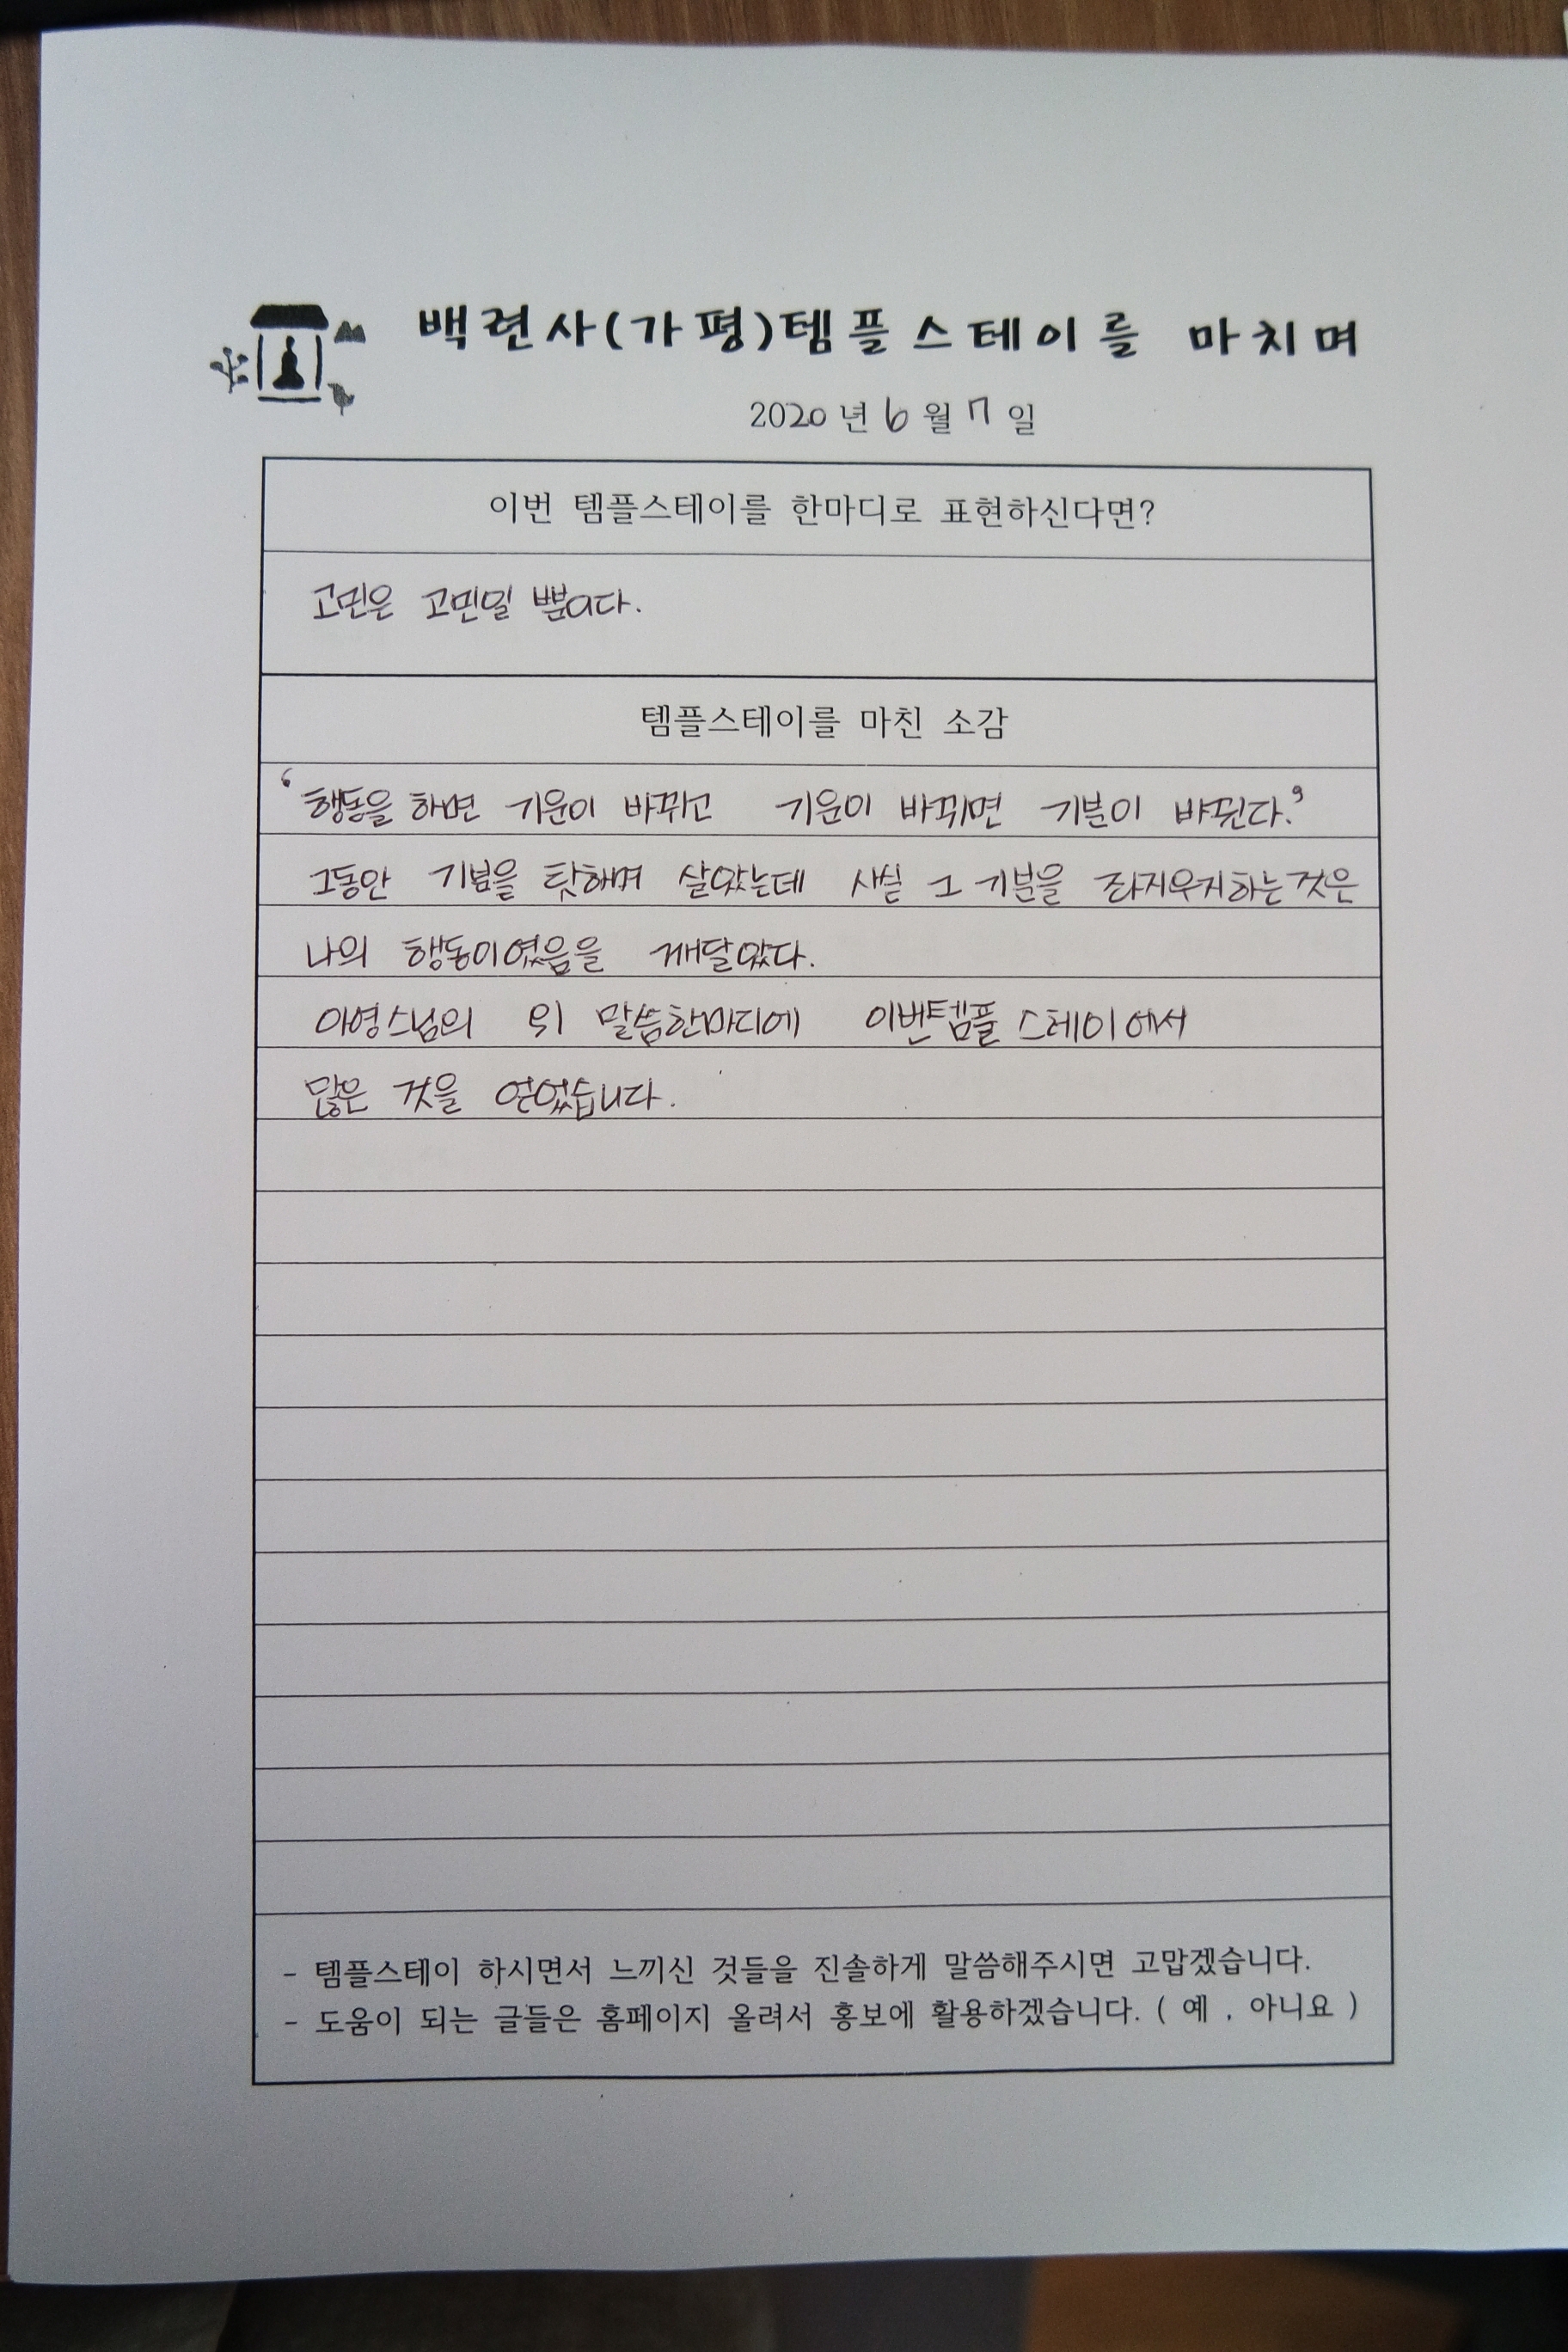 백련사(가평)템플스테이를 마치며
2020년 6월 7일
이번 템플스테이를 한마디로 표현하신다면?
고민은 고민일 뿐이다.
템플스테이를 마친 소감
'행동을 하면 기운이 바뀌고 기운이 바뀌면 기분이 바뀐다.'
그동안 기분을 탓해며 살았는데 사실 그 기분을 좌지우지하는것은
나의 행동이였음을 깨달았다.
아영스님의 위 말씀한마디에 이번템플스테이에서
많은 것을 얻었습니다.
- 템플스테이 하시면서 느끼신 것들을 진솔하게 말씀해주시면 고맙겠습니다.
- 도움이 되는 글들은 홈페이지 올려서 홍보에 활용하겠습니다. ( 예 , 아니요 )